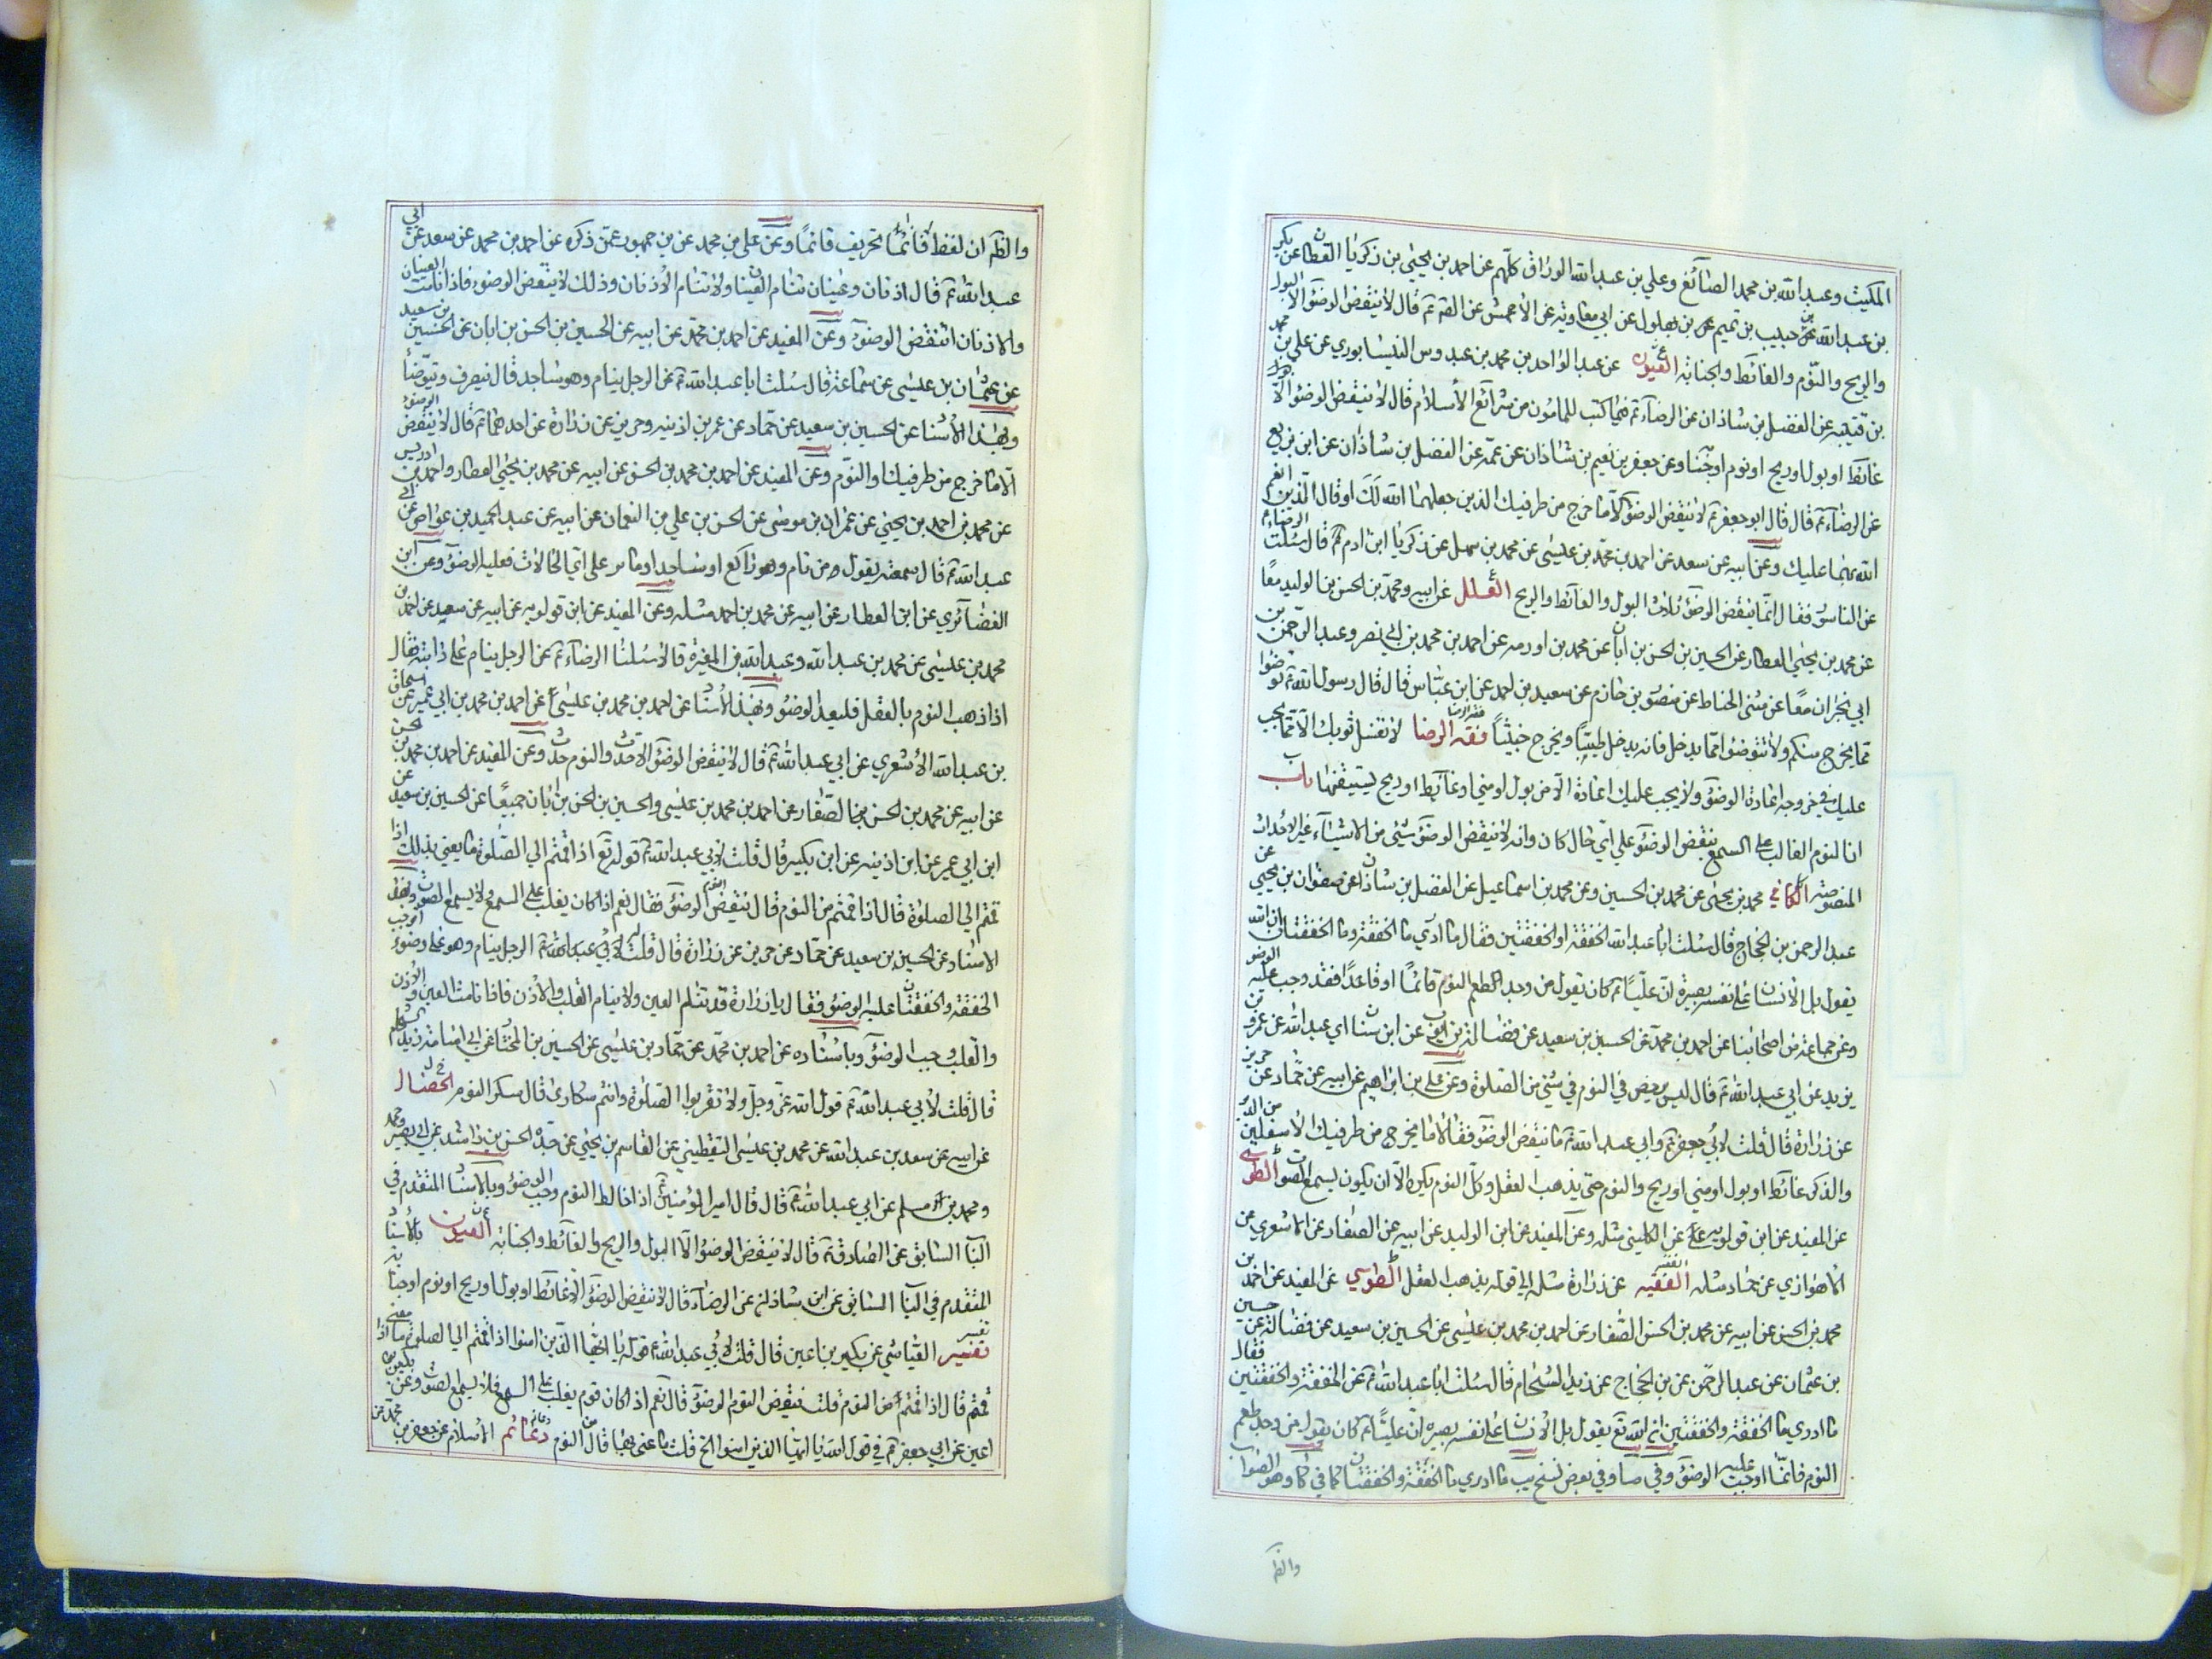 المكتب وعبد الله بن محمد الصائغ وعلي بن عبد الله الوراق كلهم عن احمد بن يحيى بن زكريا القطان عن بكر
بن عبد الله عن حبيب بن تميم عن بن بهلول عن ابي معاوية عن الاعمش عن الصم قال لا ينقض الوضوء الا البول
والريح والنوم والغائط والجنابة العيون عن عبد الواحد بن محمد بن عبدوس النيسابوري عن علي بن محمد
بن قتيبه عن الفضل بن شاذان عن الرضا ع فيما كتب للمامون من شرائع الاسلام قال لا ينقض الوضوء الا
غائط او بول او ريح او نوم او جنابة وعن جعفر بن نعيم بن شاذان عن عمه عن الفضل بن شاذان عن ابن بزيع
عن الرضا ع قال قال ابو جعفر ع لا ينقض الوضوء الا ما خرج من طرفيك الذين جعلهما الله لك او قال الذين انعم
الله بهما عليك وعن ابيه عن سعد عن احمد بن محمد بن عيسى عن محمد بن سهل عن زكريا ابن ادم ع قال سئلت الرضا ع
عن الناسور فقال انما ينقض الوضوء ثلاث البول والغائط والريح العلل عن ابيه ومحمد بن الحسن بن الوليد معا
عن محمد بن يحيى العطار عن الحسين بن الحسن بن ابان عن محمد بن اورمه عن احمد بن محمد بن ابي نصر وعبد الرحمن بن
ابي نجران معا عن مثنى الحناط عن منصور بن حازم عن سعيد بن احمد عن ابن عباس قال قال رسول الله ص توضوا
مما يخرج منكم ولا تتوضوا مما يدخل فانه يدخل طيبا ويخرج خبيثا فقه الرضا لا تغسل ثوبك الا مما يجب
عليك في خروجه اعادة الوضوء ولا يجب عليك اعادة الا من بول او مني او غائط او ريح تستيقنها باب
ان النوم الغالب على السمع ينقض الوضوء على اي حال كان وانه لا ينقض الوضوء شئ من الاشياء غير الاحداث
المنصوصه الكافي محمد بن يحيى عن محمد بن الحسين وعن محمد بن اسماعيل عن الفضل بن شاذان عن صفوان بن يحيى عن
عبد الرحمن بن الحجاج قال سئلت ابا عبد الله الخفقة او الخفقتين فقال ما ادري ما الخفقة وما الخفقتان ان الله
يقول بل الانسان على نفسه بصيرة ان عليا ع كان يقول من وجد طعم النوم قائما او قاعدا فقد وجب عليه الوضو
وعن جماعة من اصحابنا عن احمد بن محمد عن الحسين بن سعيد عن فضالة بن ايوب عن ابن سنان اي عبد الله عن عمر بن
يزيد عن ابي عبد الله ع قال ليس يرخص في النوم في شئ من الصلوة وعن علي بن ابراهيم عن ابيه عن حماد عن حريز
عن زرارة قال قلت لابي جعفر ع وابي عبد الله ع ما ينقض الوضوء فقالا ما يخرج من طرفيك الاسفلين من الدبر
والذكر غائط او بول او مني او ريح والنوم حتى يذهب العقل وكل النوم يكره الا ان يكون يسمع الصوت الطوسي
عن المفيد عن ابن قولويه عن الكليني مثله وعن المفيد عن ابن الوليد عن ابيه عن الصفار عن الاشعري عن
الاهوازي عن حماد مثله الفقيه عن زرارة مثله الى قوله يذهب العقل الطوسي عن المفيد عن احمد بن
محمد بن الحسن عن ابيه عن محمد بن الحسن الصفار عن احمد بن محمد بن عيسى عن الحسين بن سعيد عن فضالة عن حسين
بن عثمان عن عبد الرحمن بن الحجاج عن زيد الشحام قال سئلت ابا عبد الله ع عن الخفقة والخفقتين فقال
ما ادري ما الخفقة والخفقتين ان الله تع يقول بل الانسان على نفسه بصيرة ان عليا ع كان يقول من وجد طعم
النوم فانما اوجب عليه الوضوء وفي صا وفي بعض نسخ يب ما ادري ما الخفقة والخفقتان كما في كا وهو الصواب
والظم
والظم ان لفظ قائما تحريف قائما وعن علي بن محمد عن بن جمهور عمن ذكره عن احمد بن محمد عن سعد عن ابي
عبد الله ع قال اذنان وعينان تنام العينان ولا تنام الاذنان وذلك لا ينقض الوضوء فاذا نامت العينان
والاذنان انتقض الوضوء وعن المفيد عن احمد بن محمد عن ابيه عن الحسين بن الحسن بن ابان عن الحسين بن سعيد
عن عثمان بن عيسى عن سماعة قال سئلت ابا عبد الله ع عن الرجل ينام وهو ساجد قال ينصرف ويتوضأ
وبهذا الاسناد عن الحسين بن سعيد عن حماد عن عمر بن اذينه وحريز عن زرارة عن احدهما ع قال لا ينقض الوضوء
الا ما خرج من طرفيك او النوم وعن المفيد عن احمد بن محمد بن الحسن عن ابيه عن محمد بن يحيى العطار واحمد بن ادريس
عن محمد بن احمد بن يحيى عن عمران بن موسى عن الحسن بن علي بن النعمان عن ابيه عن عبد الحميد بن عواض عن ابي
عبد الله ع قال سمعته يقول من نام وهو راكع او ساجد او ماش على اي الحالات فعليه الوضوء وعن ابن
الغضائري عن ابن العطار عن ابيه عن محمد بن احمد مثله وعن المفيد عن ابن قولويه عن ابيه عن سعيد عن احمد بن
محمد بن عيسى عن محمد بن عبد الله وعبد الله بن المغيرة قالا سئلنا الرضا ع عن الرجل ينام على دابته فقال
اذا ذهب النوم بالعقل فليعد الوضوء وبهذا الاسناد عن احمد بن محمد بن عيسى عن احمد بن محمد بن ابي عمير عن اسحاق
بن عبد الله الاشعري عن ابي عبد الله ع قال لا ينقض الوضوء الا حدث والنوم حدث وعن المفيد عن احمد بن محمد بن الحسن
عن ابيه عن محمد بن الحسن الصفار عن احمد بن محمد بن عيسى والحسين بن الحسن بن ابان جميعا عن الحسين بن سعيد عن
ابن ابي عمير عن ابن اذينه عن ابن بكير قال قلت لابي عبد الله ع قوله تع اذا قمتم الى الصلوة ما يعني بذلك اذا
قمتم الى الصلوة قال اذا قمتم من النوم قال ينقض النوم الوضوء فقال نعم اذا كان يغلب على السمع ولا يسمع الصوت وبهذا
الاسناد عن الحسين بن سعيد عن حماد عن حريز عن زرارة قال قلت لابي عبد الله ع الرجل ينام وهو على وضوء اتوجب
الخفقة والخفقتان عليه الوضوء فقال يا زرارة قد تنام العين ولا ينام القلب والاذن فاذا نامت العين والاذن
والقلب وجب الوضوء وباسناده عن احمد بن محمد عن حماد بن عيسى عن الحسين بن المختار عن ابي اسامة زيد الشحام
قال قلت لابي عبد الله ع قول الله عز وجل ولا تقربوا الصلوة وانتم سكارى قال سكر النوم الخصال
عن ابيه عن سعد بن عبد الله عن محمد بن عيسى اليقطيني عن القاسم بن يحيى عن جده الحسن بن راشد عن ابي بصير
ومحمد بن مسلم عن ابي عبد الله ع قال قال امير المؤمنين ع اذا خالط النوم وجب الوضوء وبالاسناد المتقدم في
الباب السابق عن الصادق ع قال لا ينقض الوضوء الا البول والريح والغائط والجنابة العيون بالاسناد
المتقدم في الباب السابق عن ابن شاذان عن الرضا ع قال لا ينقض الوضوء الا غائط او بول او ريح او نوم او جنابة
تفسير العياشي عن بكير بن اعين قال قلت لابي عبد الله ع قوله يا ايها الذين امنوا اذا قمتم الى الصلوة ما معنى اذا
قمتم قال اذا قمتم من النوم قلت ينقض النوم الوضوء قال نعم اذا كان نوم يغلب على السمع فلا يسمع الصوت وعن بكير بن
اعين عن ابي جعفر ع في قول الله يا ايها الذين امنوا الخ قلت ما عنى بها قال من النوم دعائم الاسلام عن جعفر بن محمد عن